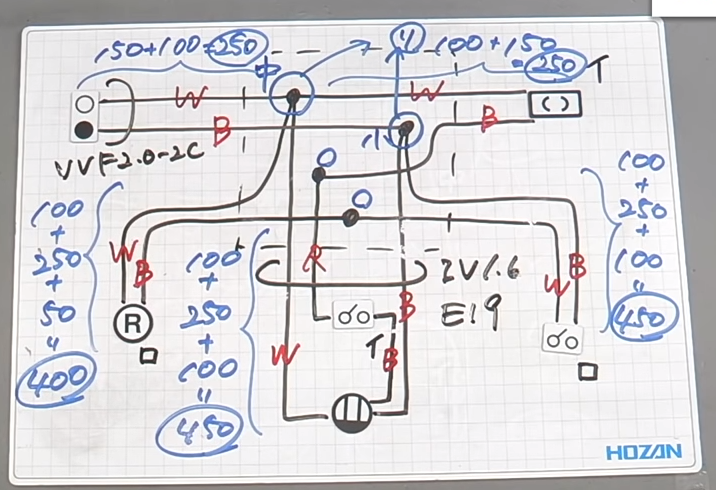 150+100=250
中
リ
100+150
=250
T
W
W
B
B
小
VVF2.0-2C
100
+
250
+
50
"
400
W
B
R
100
+
250
+
100
"
450
R
W
T
B
B
IV1.6
E19
W
B
100
+
250
+
100
"
450
HOZAN